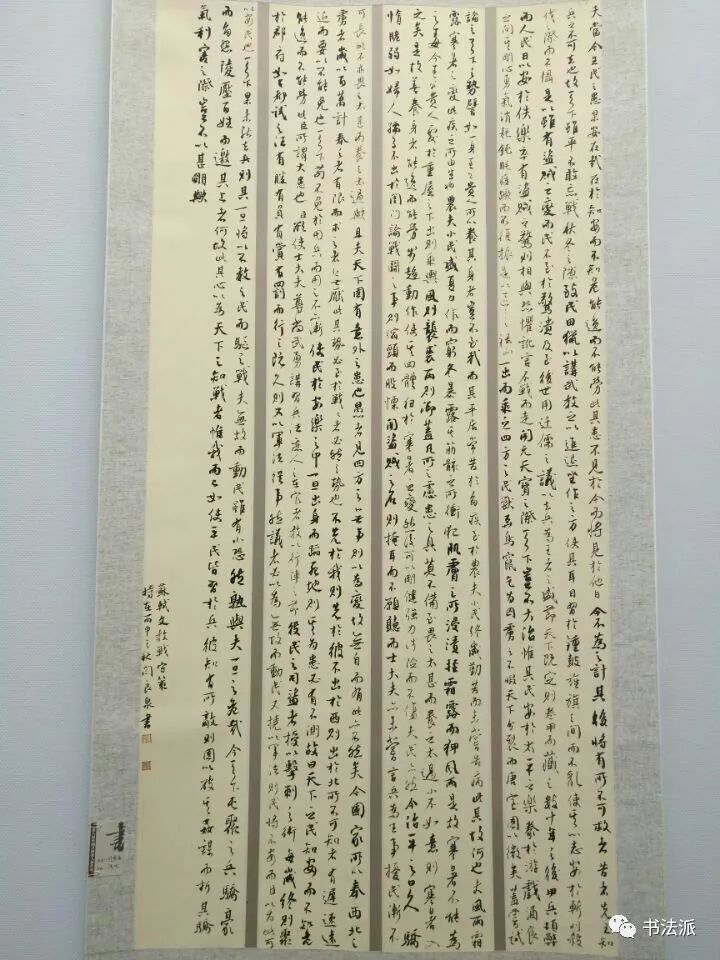 夫當今生民之患果安在哉在於知安而不知危能逸而不能勞此其患不見於今而將見於他日今不為之計其後將有所不可救者昔者先王知
兵之不可去也故天下雖平不敢忘戰秋冬之隙致民田獵以講武教之以進退坐作之方使其耳目習於鐘鼓旌旗之間而不亂使其心志安於斬刈殺
伐之際而不懾是以雖有盜賊之變而民不至於驚潰及至後世用迂儒之議以去兵為王者之盛節天下既定則卷甲而藏之數十年之後甲兵頓弊
而人民日以安於佚樂卒有盜賊之警則相與恐懼訛言不戰而走開元天寶之際天下豈不大治惟其民安於太平之樂豢於游戲酒食
之間其剛心勇氣消耗鈍眊痿蹶而不復振是以區區之祿山一出而乘之四方之民獸奔鳥竄乞為囚虜之不暇天下分裂而唐室固以微矣蓋嘗試
論之天下之勢譬如一身王公貴人所以養其身者豈不至哉而其平居常苦於多疾至於農夫小民終歲勤苦而未嘗告病此其故何也夫風雨霜
露寒暑之變此疾之所由生也農夫小民盛夏力作而窮冬暴露其筋骸之所衝犯肌膚之所浸漬輕霜露而狎風雨是故寒暑不能為
之毒今王公貴人處於重屋之下出則乘輿風則襲裘雨則御蓋凡所以慮患之具莫不備至畏之太甚而養之太過小不如意則寒暑入
之矣是故善養身者使之能逸而能勞步趨動作使其四體狃於寒暑之變然後可以剛健強力涉險而不傷夫民亦然今者治平之日久天下之人驕
惰脆弱如婦人孺子不出於閨門論戰鬥之事則縮頸而股慄聞盜賊之名則掩耳而不願聽而士大夫亦未嘗言兵以為生事擾民漸不
可長此不亦畏之太甚而養之太過歟且夫天下固有意外之患也愚者見四方之無事則以為變故無自而有此亦不然矣今國家所以奉西北之
虜者歲以百萬計奉之者有限而求之者無厭此其勢必至於戰戰者必然之勢也不先於我則先於彼不出於西則出於北所不可知者有遲速遠
近而要以不能免也天下苟不免於用兵而用之不以漸使民於安樂之中一旦出身而蹈死地則其為患必有不測故曰天下之民知安而不知危
能逸而不能勞此臣所謂大患也臣欲使士大夫尊尚武勇講習兵法庶人之在官者教以行陣之節役民之司盜者授以擊刺之術每歲終則聚
於郡府如古都試之法有勝有負有賞有罰而行之既久則又以軍法從事然議者必以為無故而動民又撓以軍法則民將不安而臣以為此所
以安民也天下果未能去兵則其一旦將以不教之民而驅之戰夫無故而動民雖有小恐然孰與夫一旦之危哉今天下屯聚之兵驕豪
而多怨陵壓百姓而邀其上者何故此其心以為天下之知戰者惟我而已如使平民皆習於兵彼知有所敵則固以破其姦謀而折其驕
氣利害之際豈不以甚明歟
蘇軾文教戰守策
時在丙申之秋閆良泉書
書
书法派